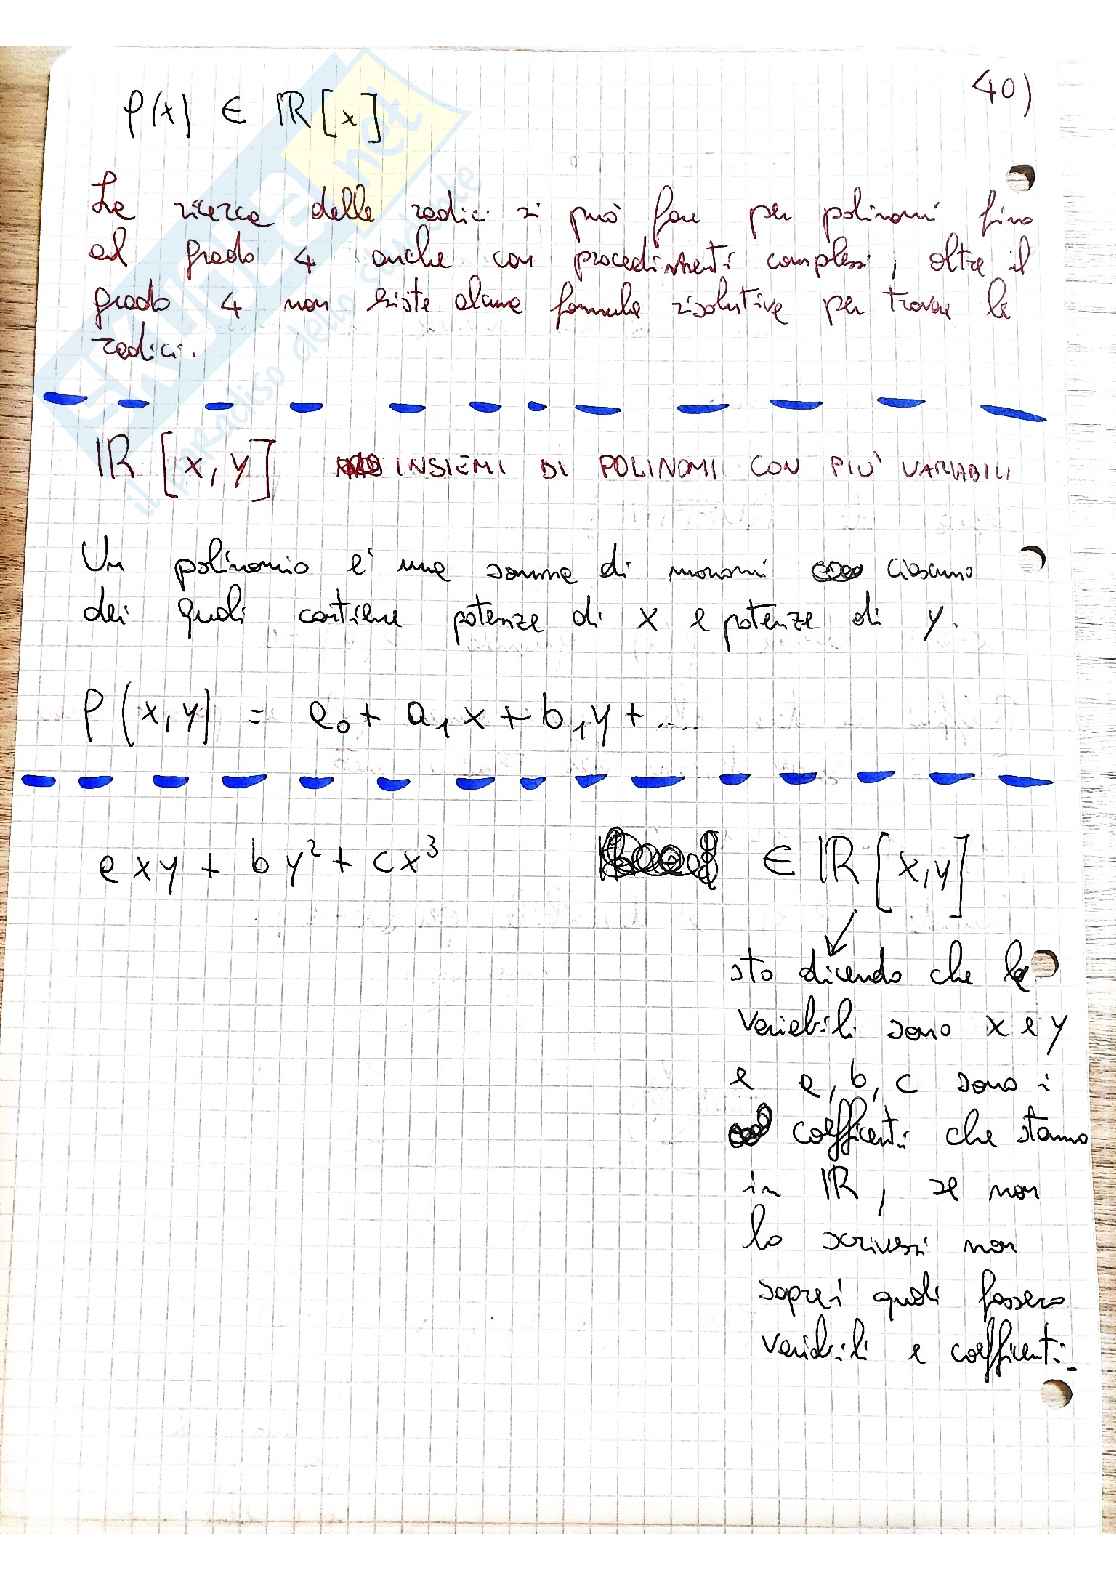 40)
P(x) ∈ ℝ[x]
La ricerca delle radici si può fare per polinomi fino
al grado 4 anche con procedimenti complessi, oltre il
grado 4 non esiste alcuna formula risolutiva per trovare le
radici.
ℝ[x,y] INSIEMI DI POLINOMI CON PIÙ VARIABILI
Un polinomio è una somma di monomi ciascuno
dei quali contiene potenze di x e potenze di y.
P(x,y) = a₀ + a₁x + b₁y + ....
axy + by² + cx³ ∈ ℝ[x,y]
sto dicendo che le
variabili sono x e y
e a, b, c sono i
coefficienti che stanno
in ℝ, se non
lo scrivessi non
saprei quali fossero
variabili e coefficienti.
SKUOLA.net
il paradiso dello studente